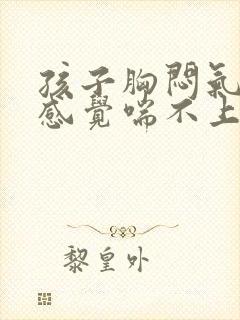 孩子胸悶氣
感覺喘不上
黎皇外